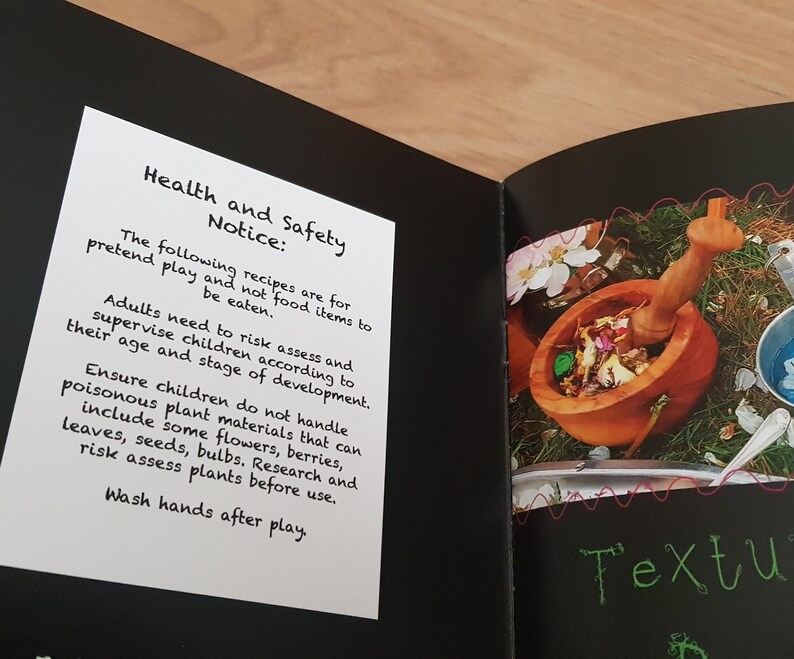 Health and Safety
Notice:
The following recipes are for
pretend play and not food items to
be eaten.
Adults need to risk assess and
supervise children according to
their age and stage of development.
Ensure children do not handle
poisonous plant materials that can
include some flowers, berries,
leaves, seeds, bulbs. Research and
risk assess plants before use.
Wash hands after play.